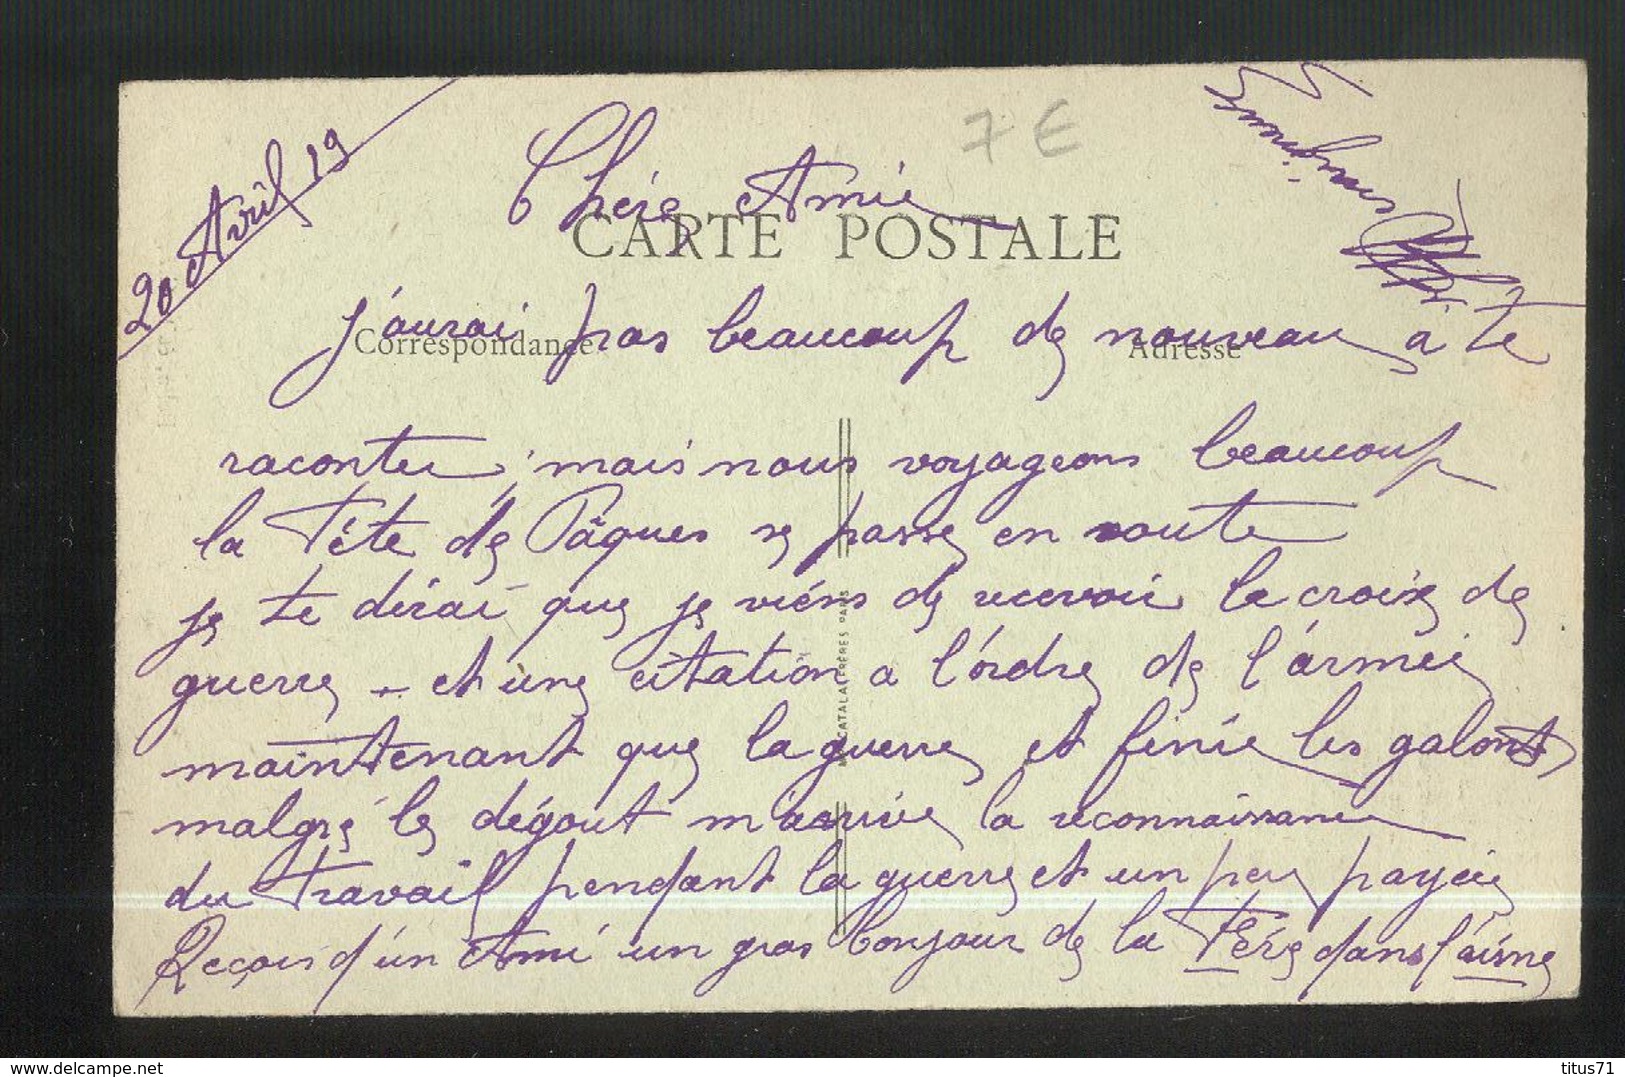 20 Avril 19
7 €
Chère Amie
CARTE POSTALE
Correspondance
Adresse
j'aurai pas beaucoup de nouveau à te
raconter, mais nous voyageons beaucoup
la Fête de Pâques se passe en route
je te dirai que je viens de recevoir la croix de
guerre - et une citation a l'ordre de l'armée
maintenant que la guerre et finie les galons
malgré le dégout m'arrive la reconnaissance
du travail pendant la guerre et un peu payée
Reçois d'un Ami un gros bonjour de la Fère dans l'aisne
CATALA FRÈRES PARIS
titus71